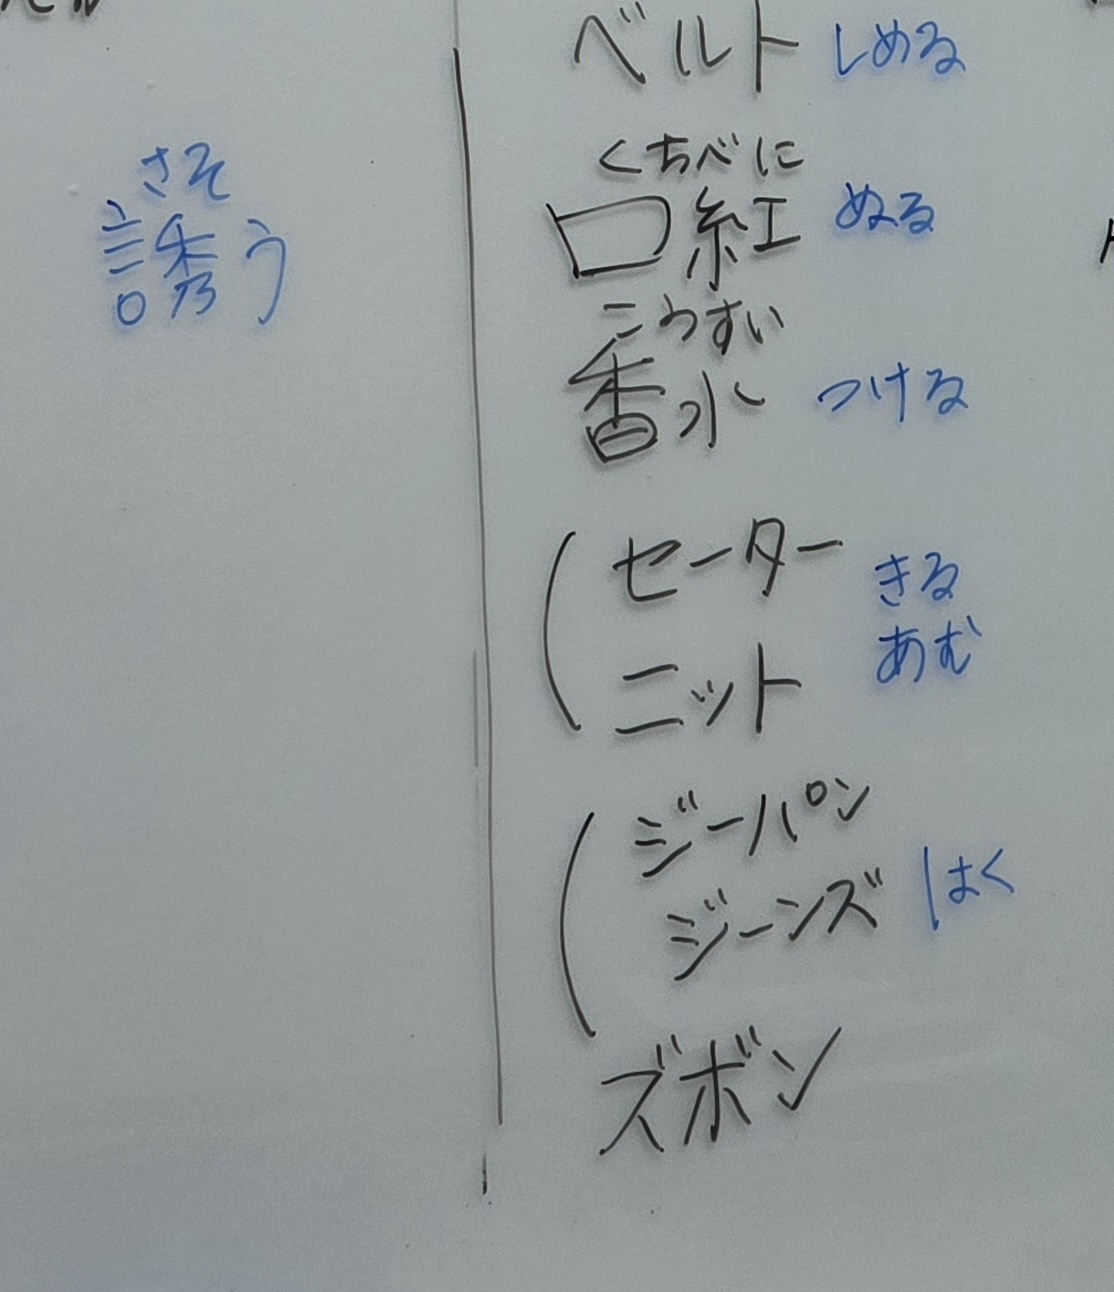 さそ
誘う
ベルト しめる
くちべに
口紅 ぬる
こうすい
香水 つける
セーター きる
あむ
ニット
ジーパン
ジーンズ はく
ズボン